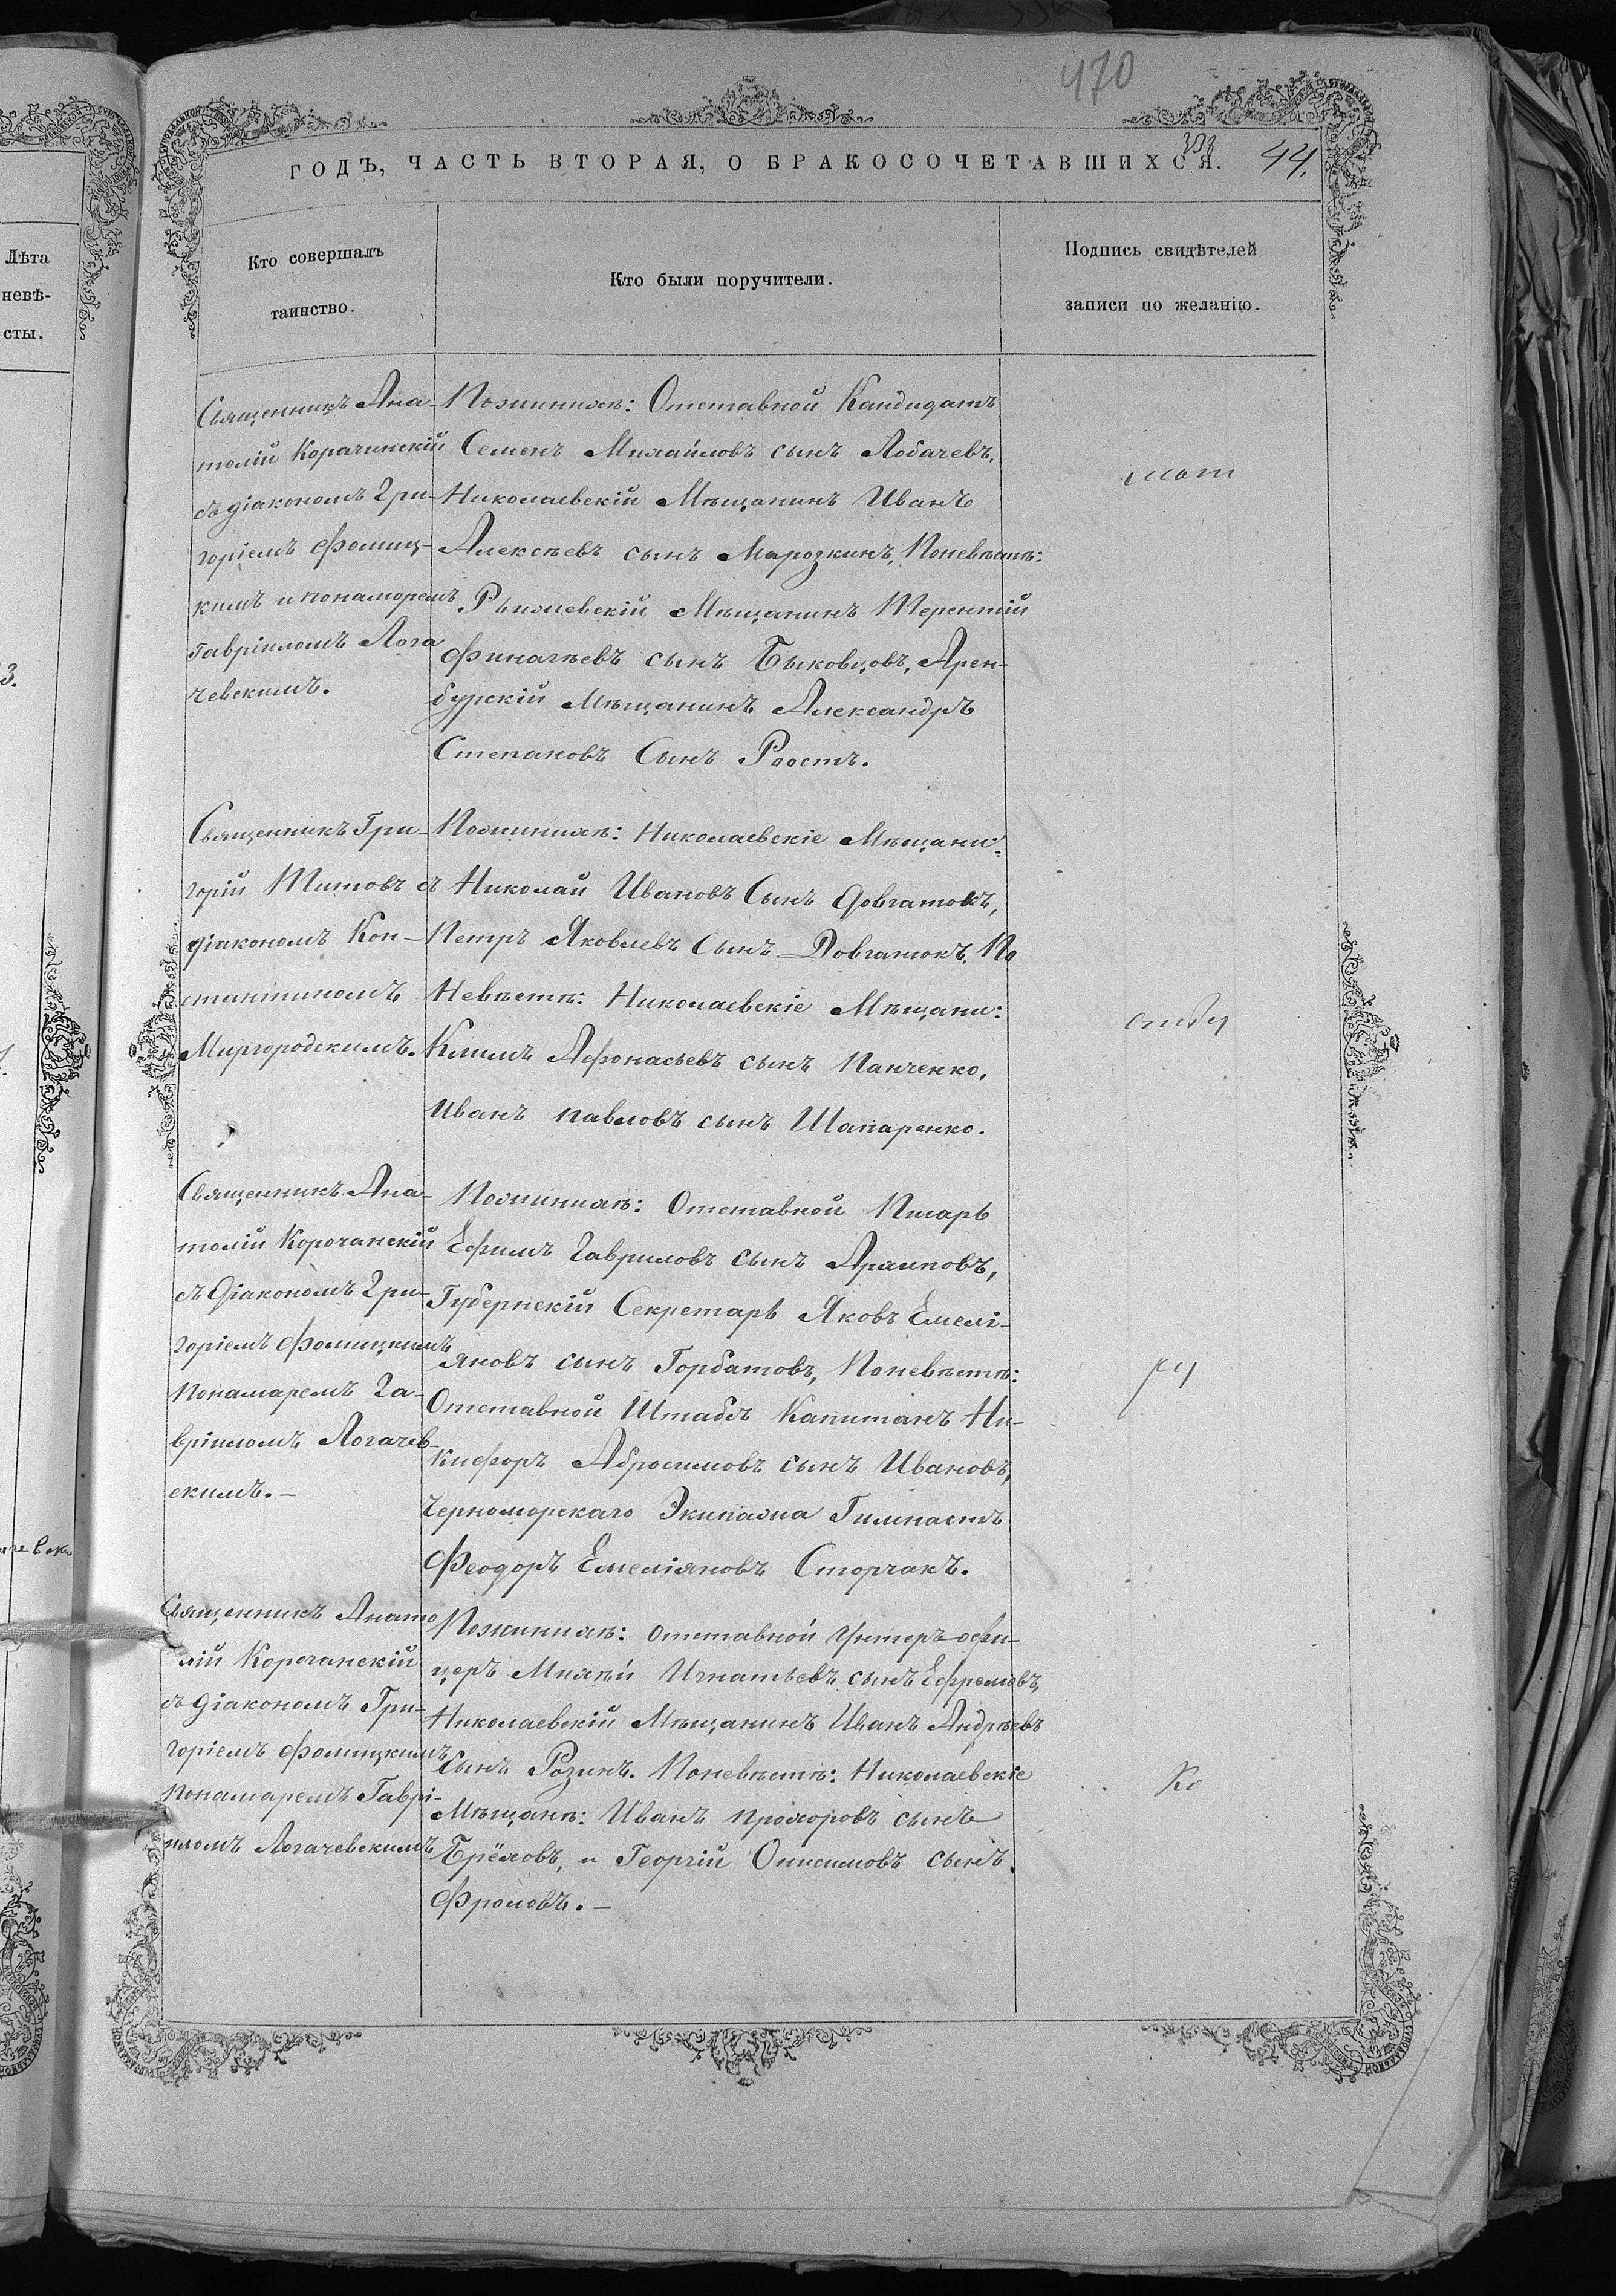 470
ГОДЪ, ЧАСТЬ ВТОРАЯ, О БРАКОСОЧЕТАВШИХСЯ. 44.
Лѣта
невѣ-
сты.
Кто совершалъ
таинство.
Кто были поручители.
Подпись свидѣтелей
записи по желанію.
Священникъ Ана-
толій Корачинскій
съ діакономъ Гри-
горіемъ Фомиц-
кимъ и понаморемъ
Гавріиломъ Лога
чевскимъ.
Пожинихѣ: Отставной Кандидатъ
Семенъ Михайловъ сынъ Лобачевъ,
Николаевскій Мѣщанинъ Иванъ
Алексѣевъ сынъ Марозкинъ, Поневѣстѣ:
Мѣщанинъ Терентій
Финагѣевъ сынъ Быковцовъ, Арен-
бурскій Мѣщанинъ Александръ
Степановъ Сынъ Роостъ.
3.
Священникъ Гри-
горій Титовъ съ
діакономъ Кон-
стантиномъ
Миргородскимъ.
Пожинихѣ: Николаевскіе Мѣщани:
Николай Ивановъ Сынъ Довгатокъ,
Петръ Яковлевъ Сынъ Довгатюкъ, По
Невѣстѣ: Николаевскіе Мѣщани:
Климъ Афонасьевъ сынъ Панченко,
Иванъ Павловъ сынъ Шапаренко.
Священникъ Ана-
толій Корочанскій
съ Діакономъ Гри-
горіемъ Фомицкимъ
Понамаремъ Га-
вріиломъ Логачев-
скимъ.-
Пожинихѣ: Отставной Писарь
Ефимъ Гавриловъ сынъ Араповъ,
Губернскій Секретарь Яковъ Емелі-
яновъ сынъ Горбатовъ, Поневѣстѣ:
Отставной Штабсъ Капитанъ Ни-
кифоръ Абросимовъ сынъ Ивановъ,
Черноморскаго Экипажа Гимнастъ
Феодоръ Емеліяновъ Сторчакъ.
Священникъ Анато
лій Корочанскій
съ Діакономъ Гри-
горіемъ Фомицкимъ
Понамаремъ Гаврі-
иломъ Логачевскимъ
Пожинихѣ: отставной Унтеръ-офи-
церъ Михѣй Игнатьевъ сынъ Ефремовъ,
Николаевскій Мѣщанинъ Иванъ Андрѣевъ
Сынъ Розинъ. Поневѣстѣ: Николаевскіе
Мѣщанѣ: Иванъ Прохоровъ сынъ
Брёховъ, и Георгій Онисимовъ сынъ
Фроловъ.-
Ко